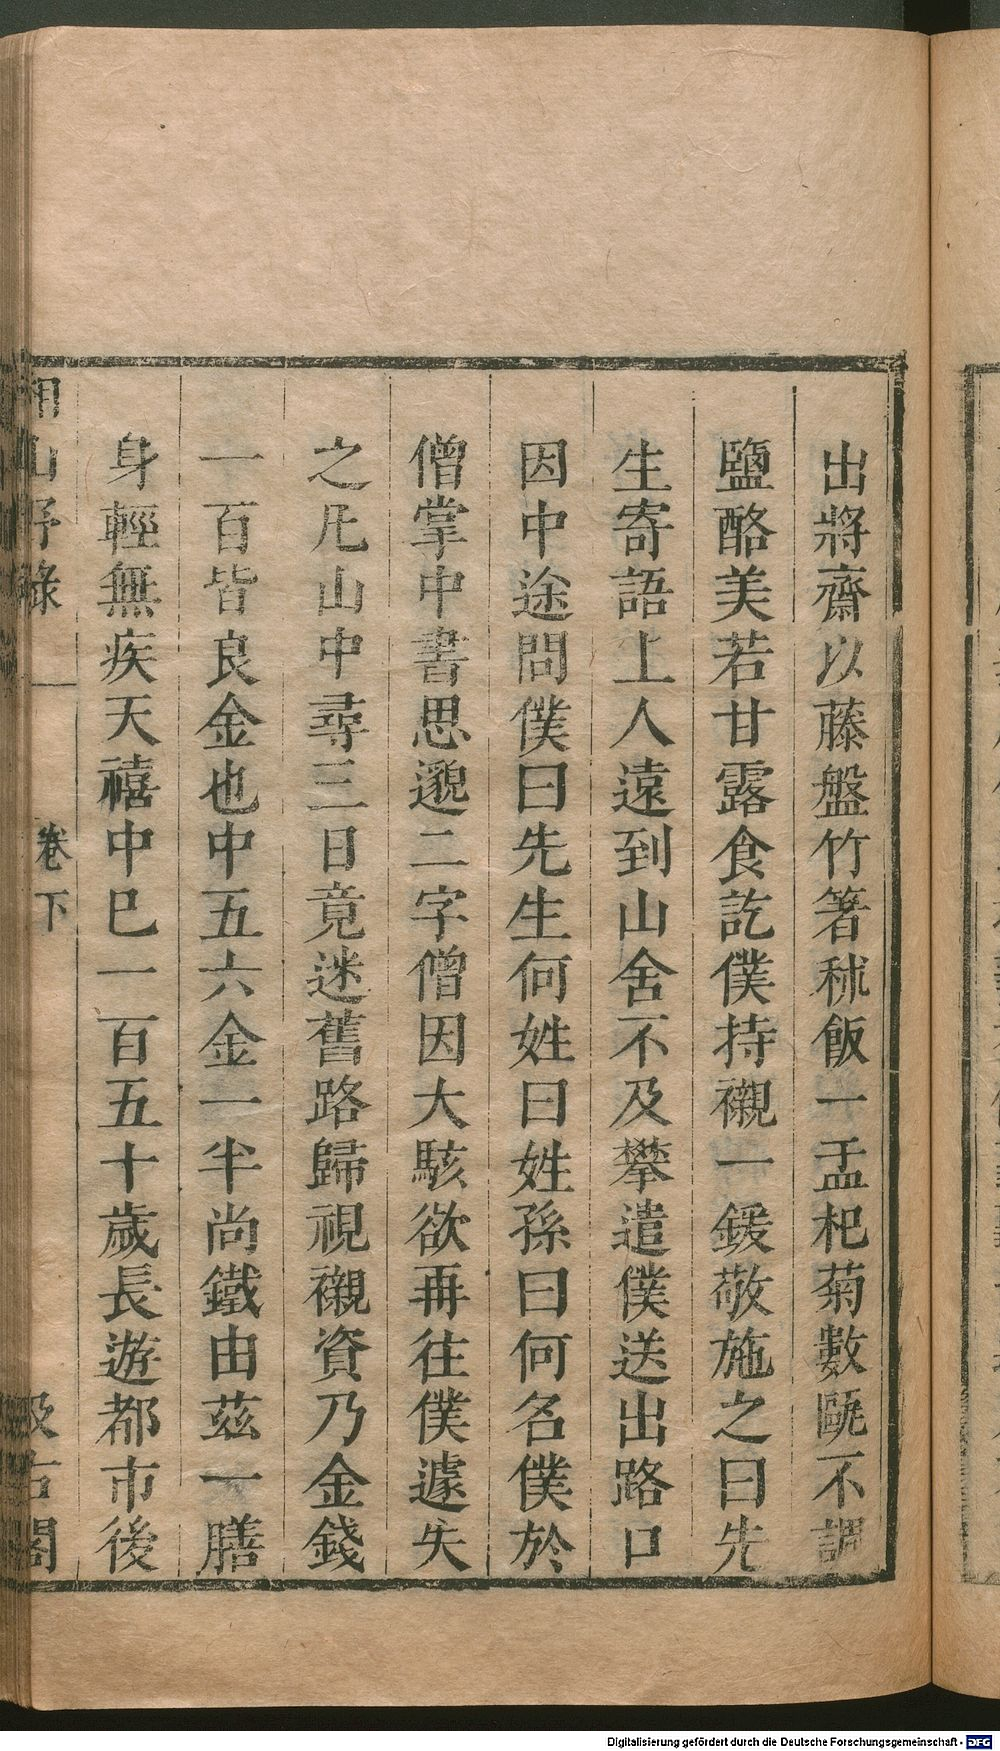 出將齋以藤盤竹箸秫飯一盂杞菊數甌不調
鹽酪美若甘露食訖僕持襯一鍰敬施之曰先
生寄語上人遠到山舍不及攀遣僕送出路口
因中途問僕曰先生何姓曰姓孫曰何名僕於
僧掌中書思邈二字僧因大駭欲再往僕遽失
之凡山中尋三日竟迷舊路歸視襯資乃金錢
一百皆良金也中五六金一半尚鐵由茲一膳
身輕無疾天禧中巳一百五十歲長遊都市後
相山予錄 卷下 汲古閣
Digitalisierung gefördert durch die Deutsche Forschungsgemeinschaft - DFG